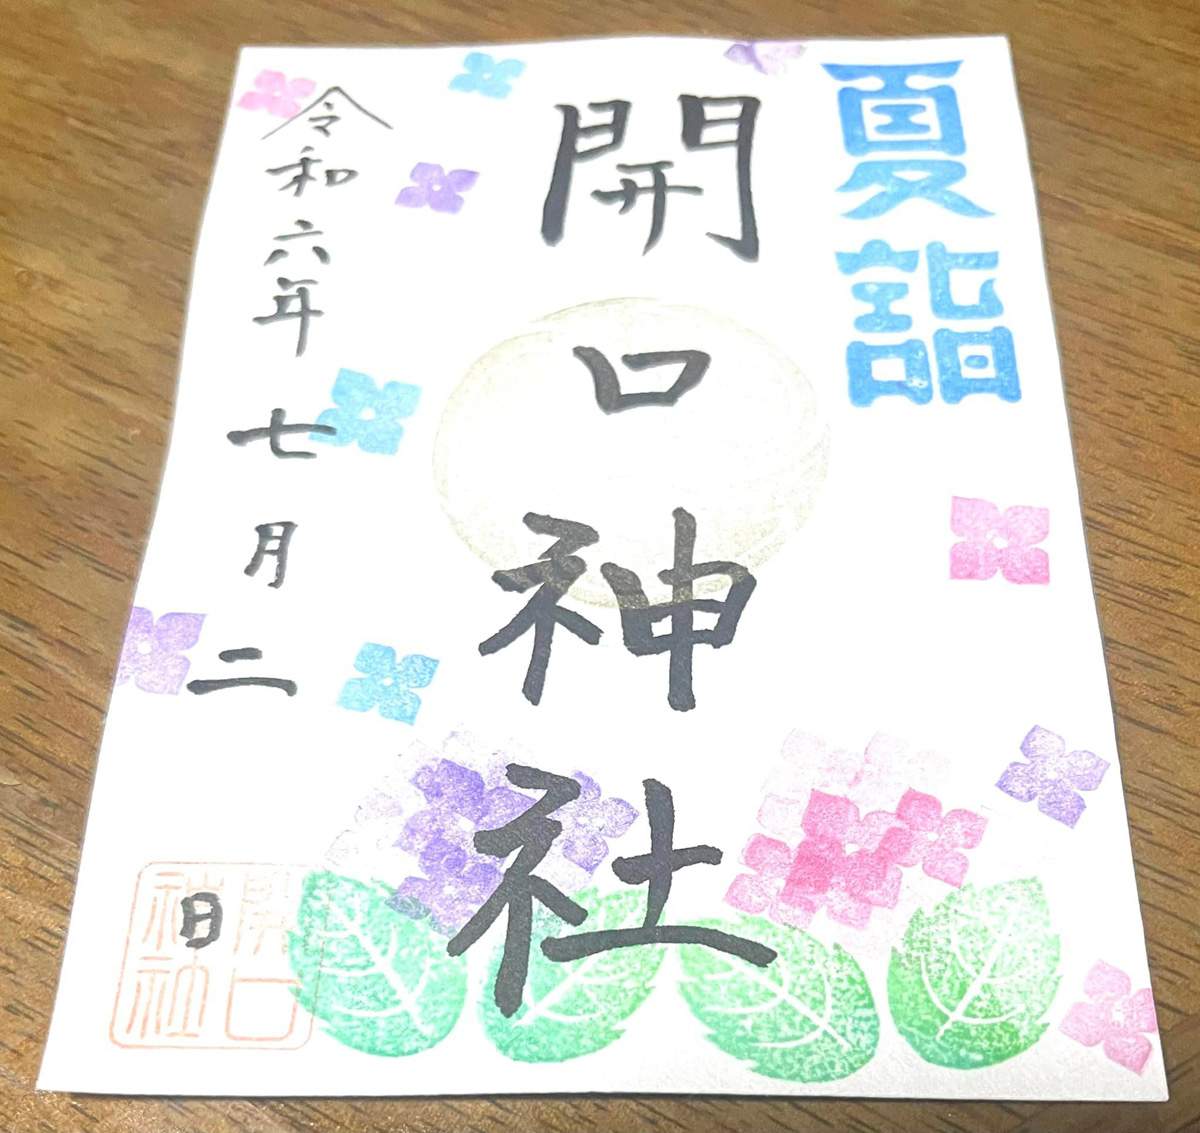 夏詣
開口神社
令和六年七月二日
開口
神社